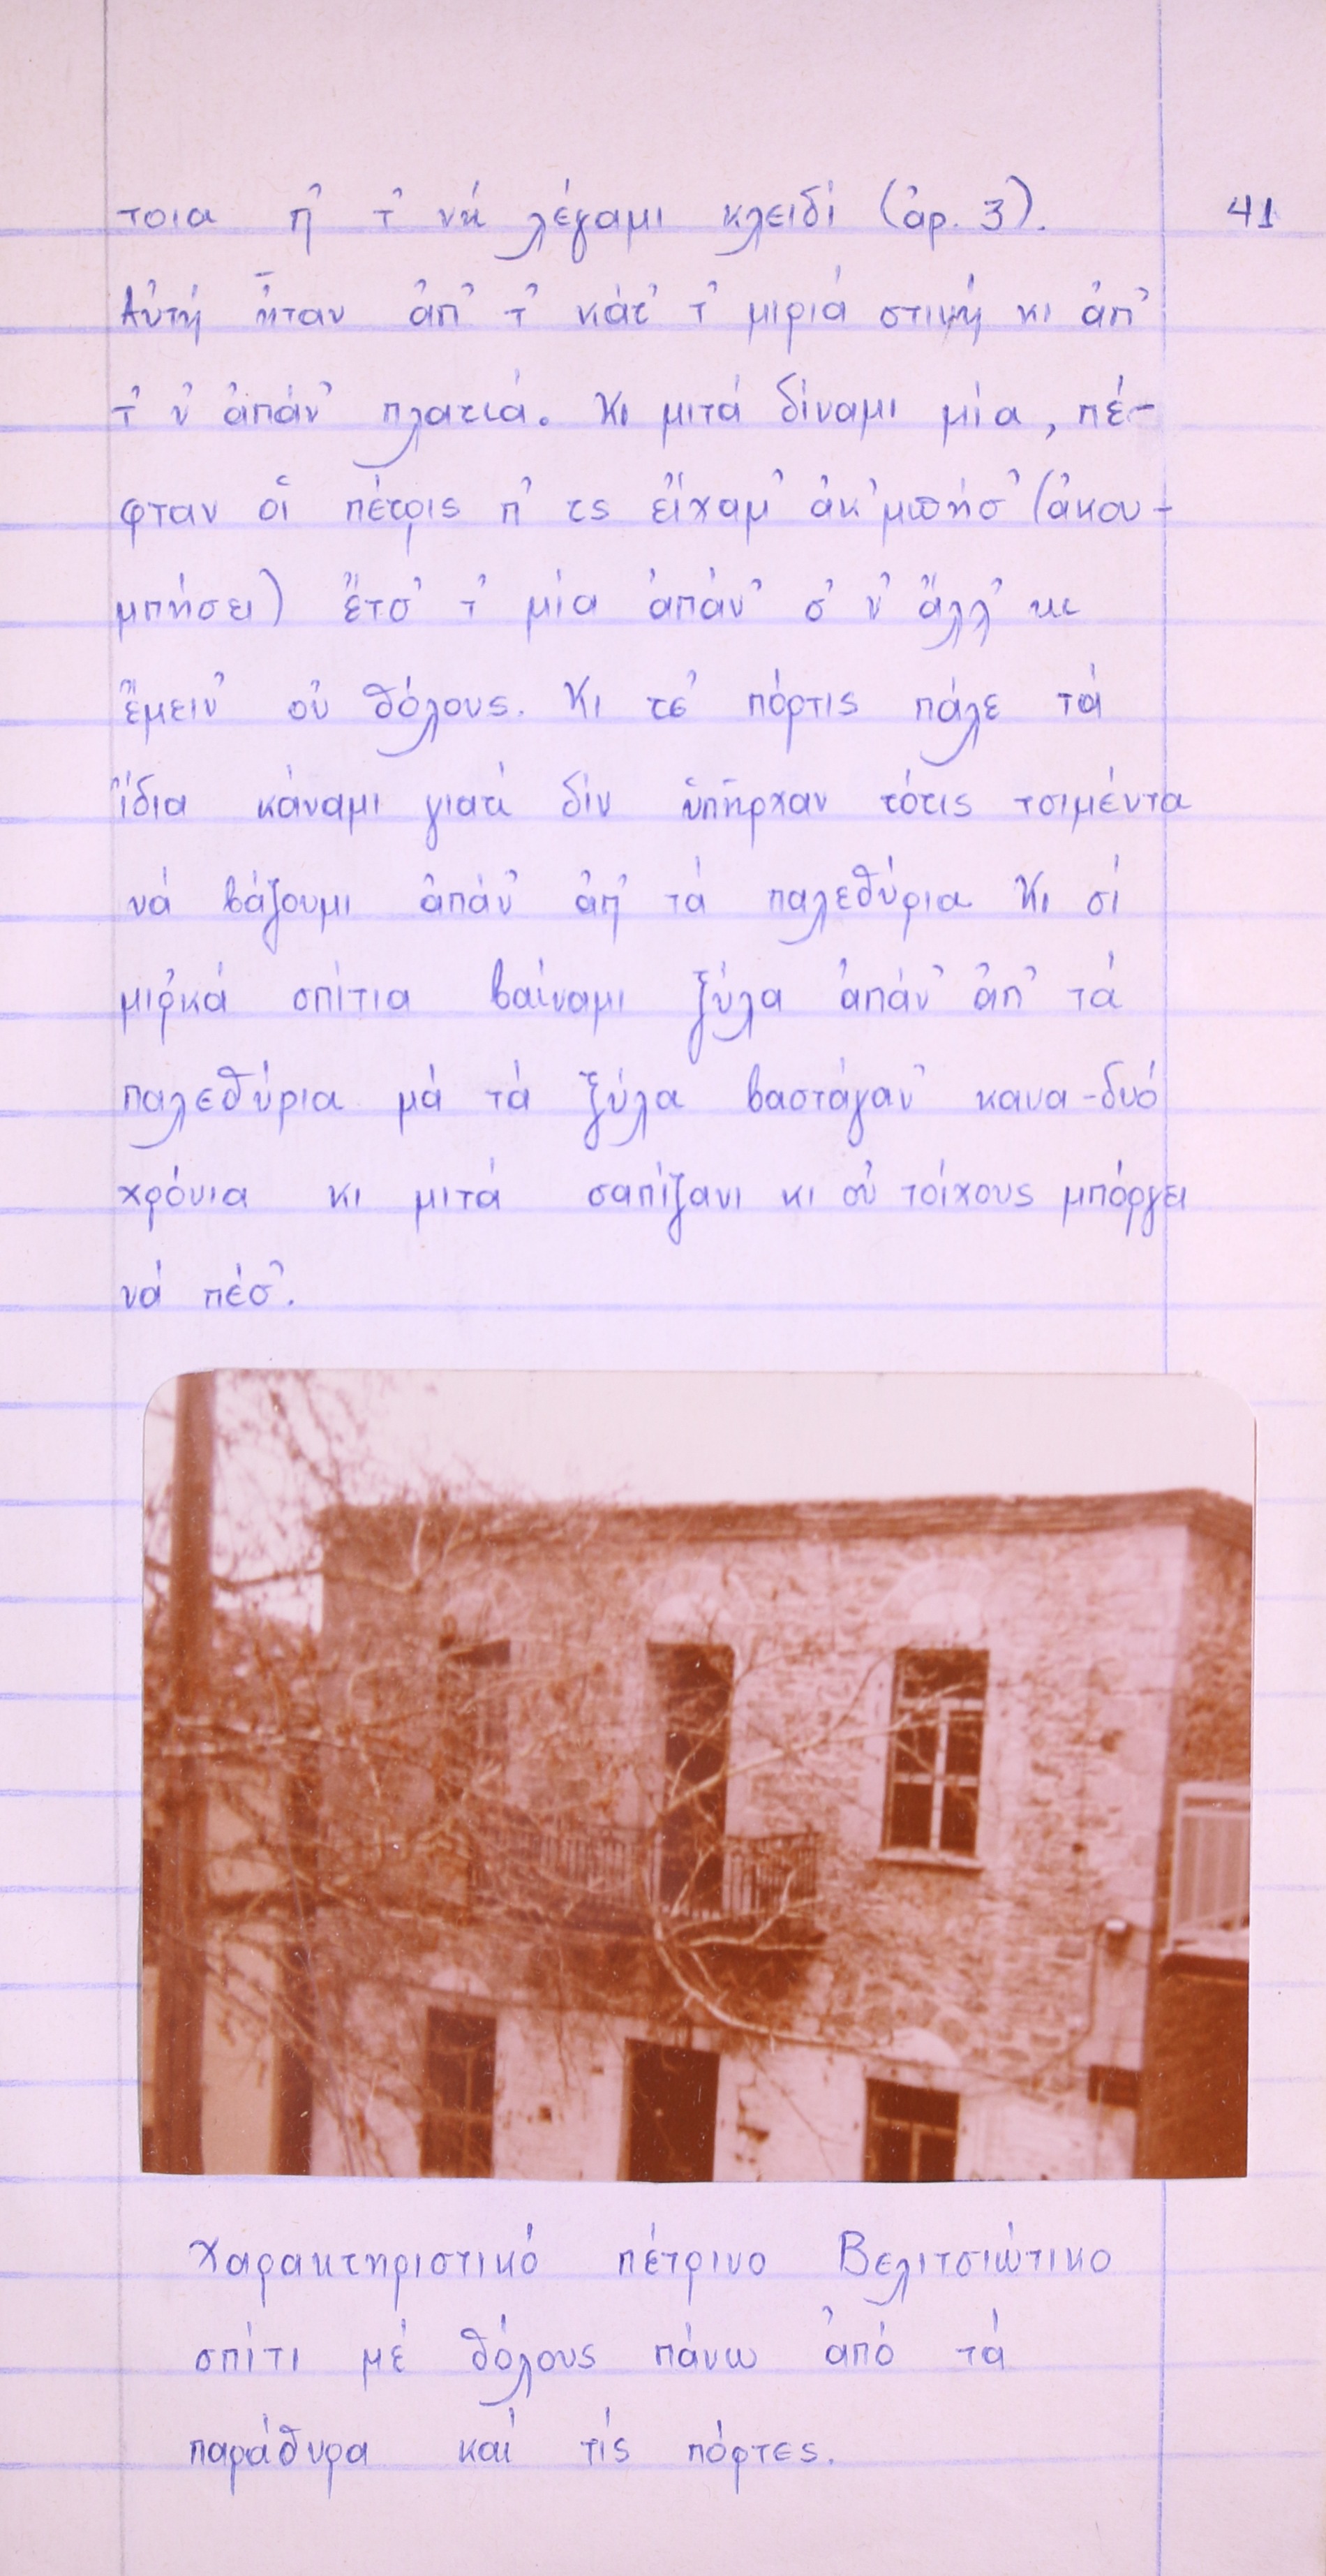 τοια π̓ τ̓ νὴ λέγαμι κλειδί (ἀρ. 3).
41
Αὐτή ἦταν ἀπ᾿ τ᾿ κάτ᾿ τ᾿ μιριά στινή κι ἀπ᾿
τ᾿ ν᾿ ἀπάν᾿ πλατιά. Κι μιτά δίναμι μία, πέ-
φταν οἱ πέτρις π᾿ τς εἴχαμ᾿ ἀκ᾿μπήσ᾿ (ἀκου-
μπήσει) ἔτσ᾿ τ᾿ μία ἀπάν᾿ σ᾿ ν᾿ ἄλλ᾿ κι
ἔμειν᾿ οὐ θόλους. Κι τσ᾿ πόρτις πάλε τά
ἴδια κάναμι γιατί δίν ὑπῆρχαν τότις τσιμέντα
νά βάζουμι ἀπάν᾿ ἀπ᾿ τά παλεθύρια Κι σί
μιρκά σπίτια βαίναμι ξύλα ἀπάν᾿ ἀπ᾿ τά
παλεθύρια μά τά ξύλα βαστάγαν᾿ κανα-δυό
χρόνια κι μιτά σαπίζανι κι οὐ τοίχους μπόργει
νά πέσ᾿.
Χαρακτηριστικό πέτρινο Βελιτσιώτικο
σπίτι μέ θόλους πάνω ἀπό τά
παράθυρα καί τίς πόρτες.